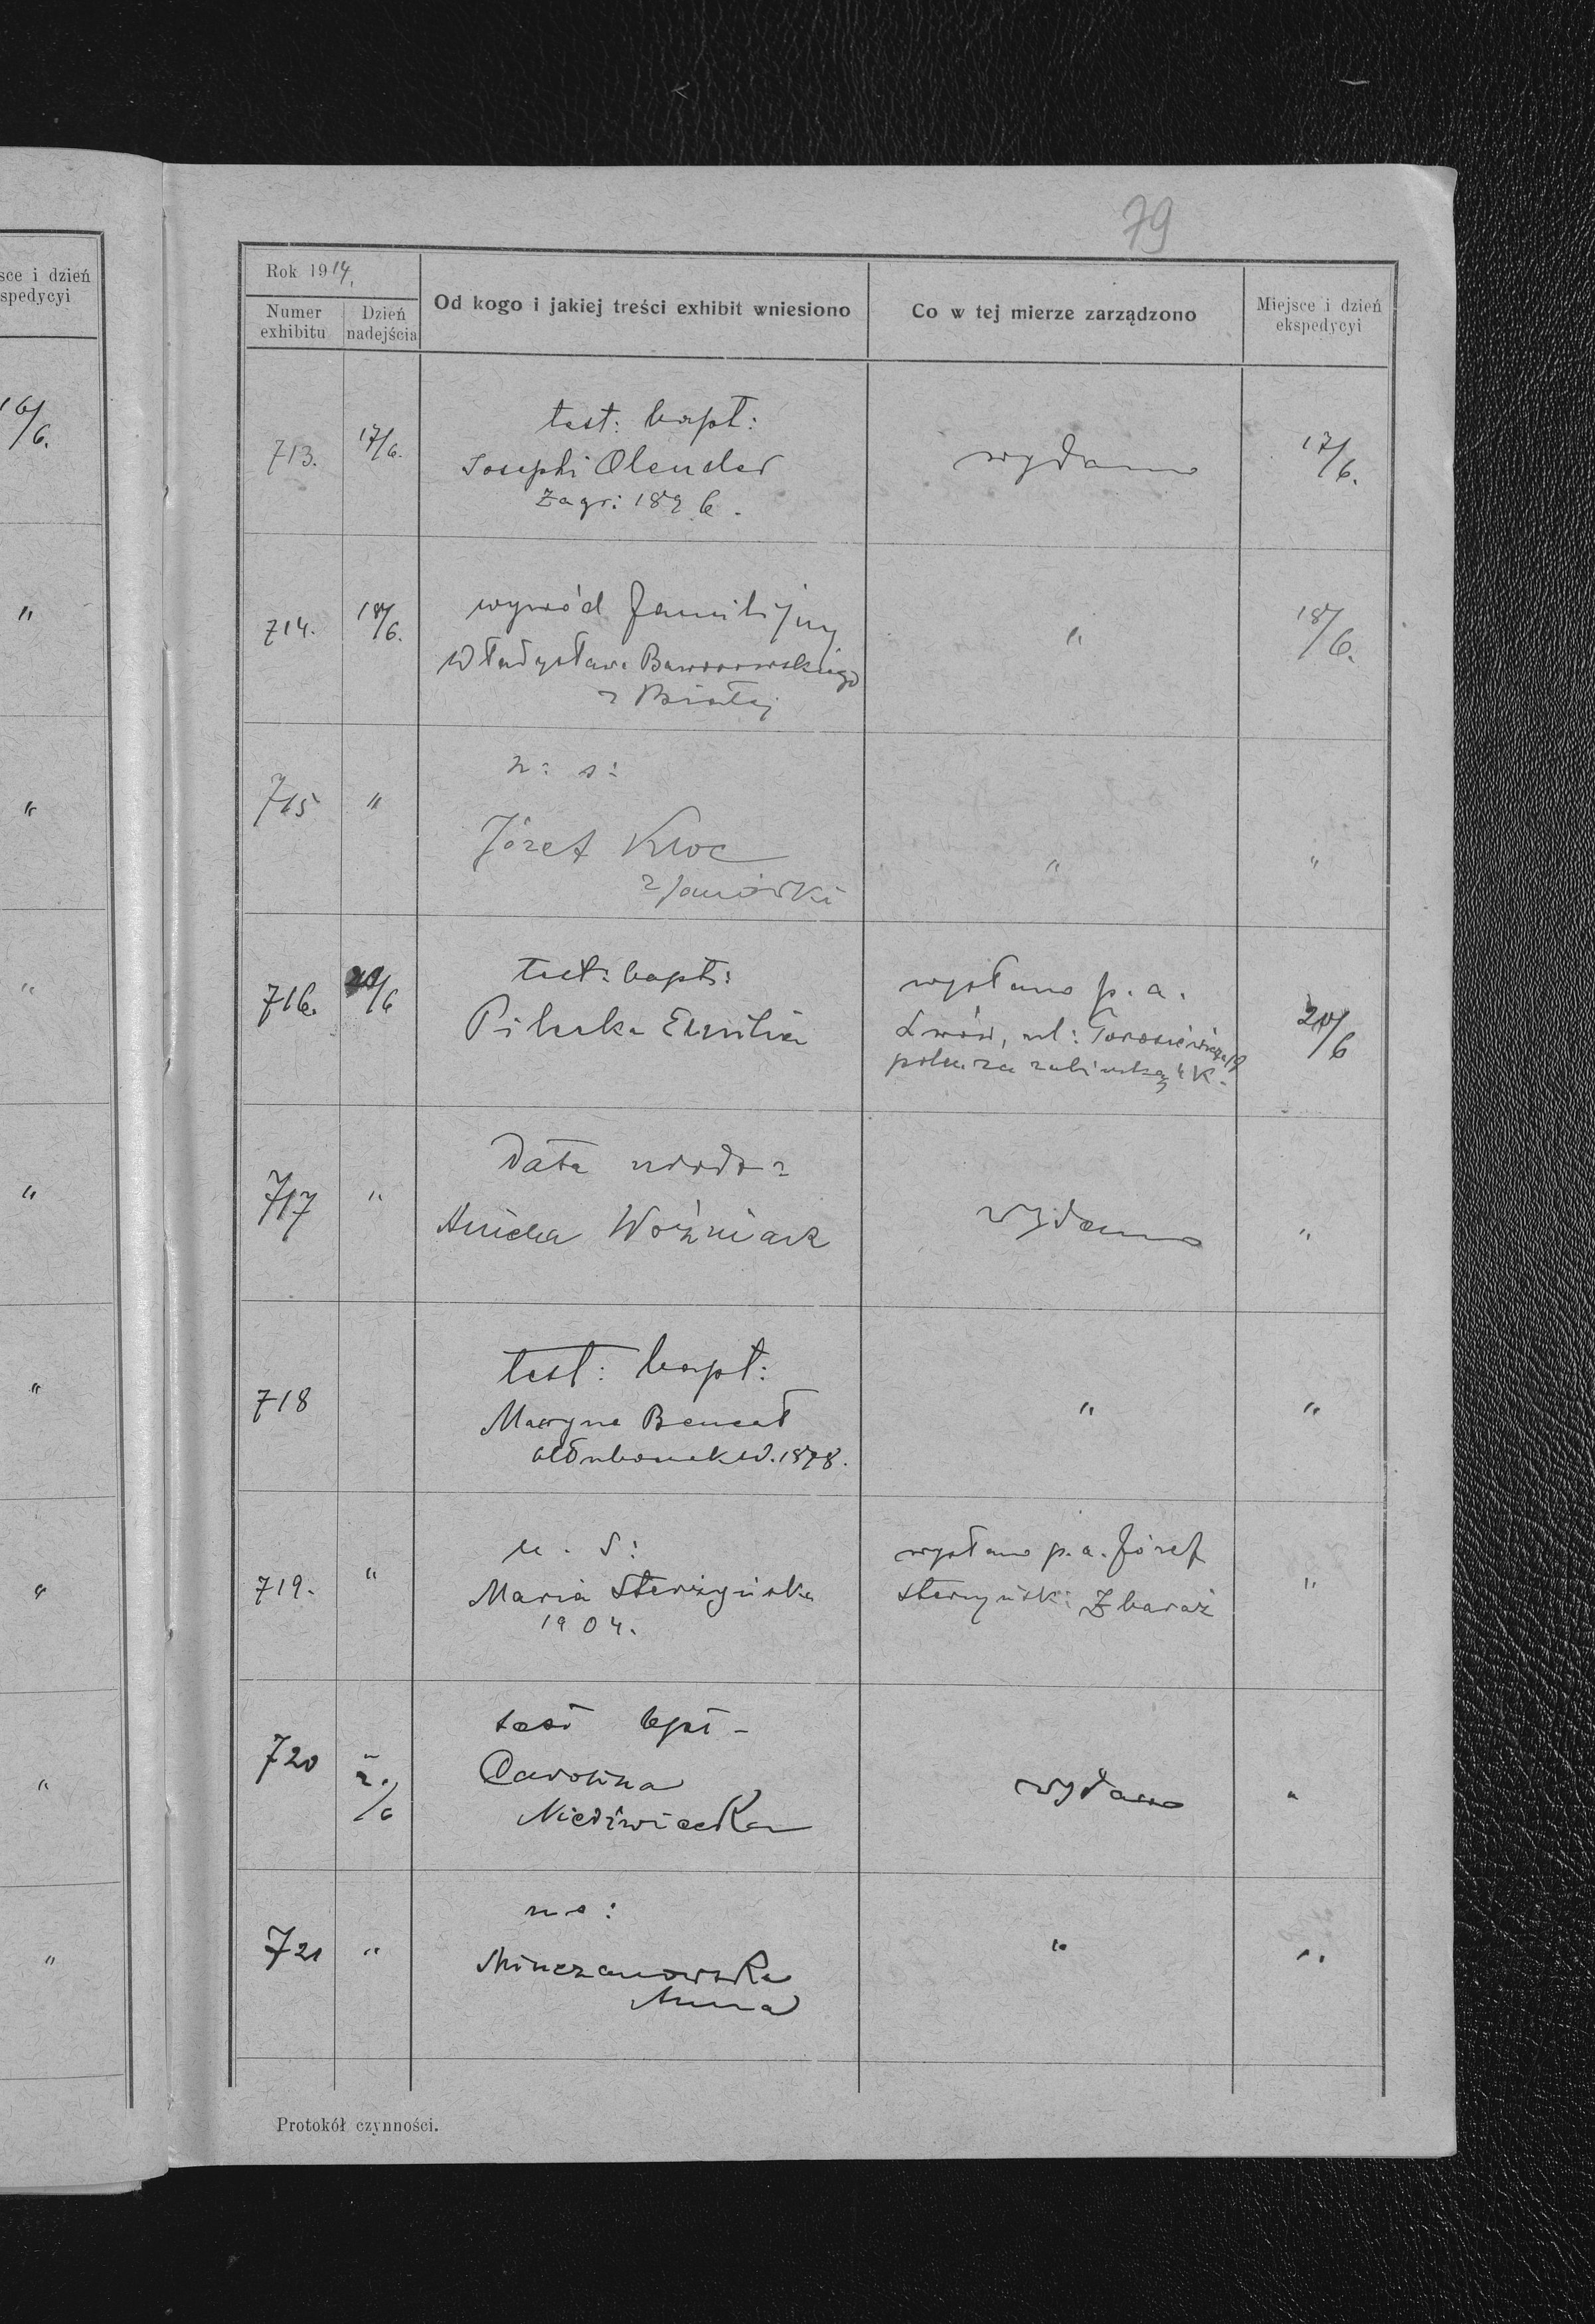 79
sce i dzień
spedycyi
16/6.
"
"
"
"
"
"
"
"
Rok 1914.
Numer exhibitu
Dzień nadejścia
Od kogo i jakiej treści exhibit wniesiono
Co w tej mierze zarządzono
Miejsce i dzień ekspedycyi
713. 17/6. test: bapt: wydano 17/6.
Josephi Olender
Zagr: 1896.
714. 18/6. wywód familijny " 18/6.
Władysława Baworowskiego
z Białej
715 " n: s:
Józef Kloc " "
z Janówki
716. 20/6 test: bapt: wysłano p. a. 20/6
Pilecka Emilia Lwów, ul: Torosiewicza
4 K.
717 " Data urodz: wydano "
Aniela Woźniak
718 test: bapt: " "
Maryna Bencal
1878.
719. " n. s: wysłano p. a. Józef "
Maria Sterzyńska Zbaraż
1904.
720 /6 test bpt - wydano "
Carolina
Niedźwiecka
721 " n s: " "
Minczanowska
Anna
Protokół czynności.